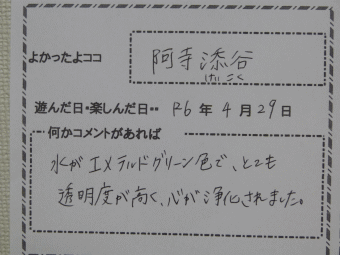 よかったよココ
阿寺渓谷
けいこく
遊んだ日・楽しんだ日・・ R6 年 4 月 29 日
何かコメントがあれば
水がエメラルドグリーン色で、とても
透明度が高く、心が浄化されました。